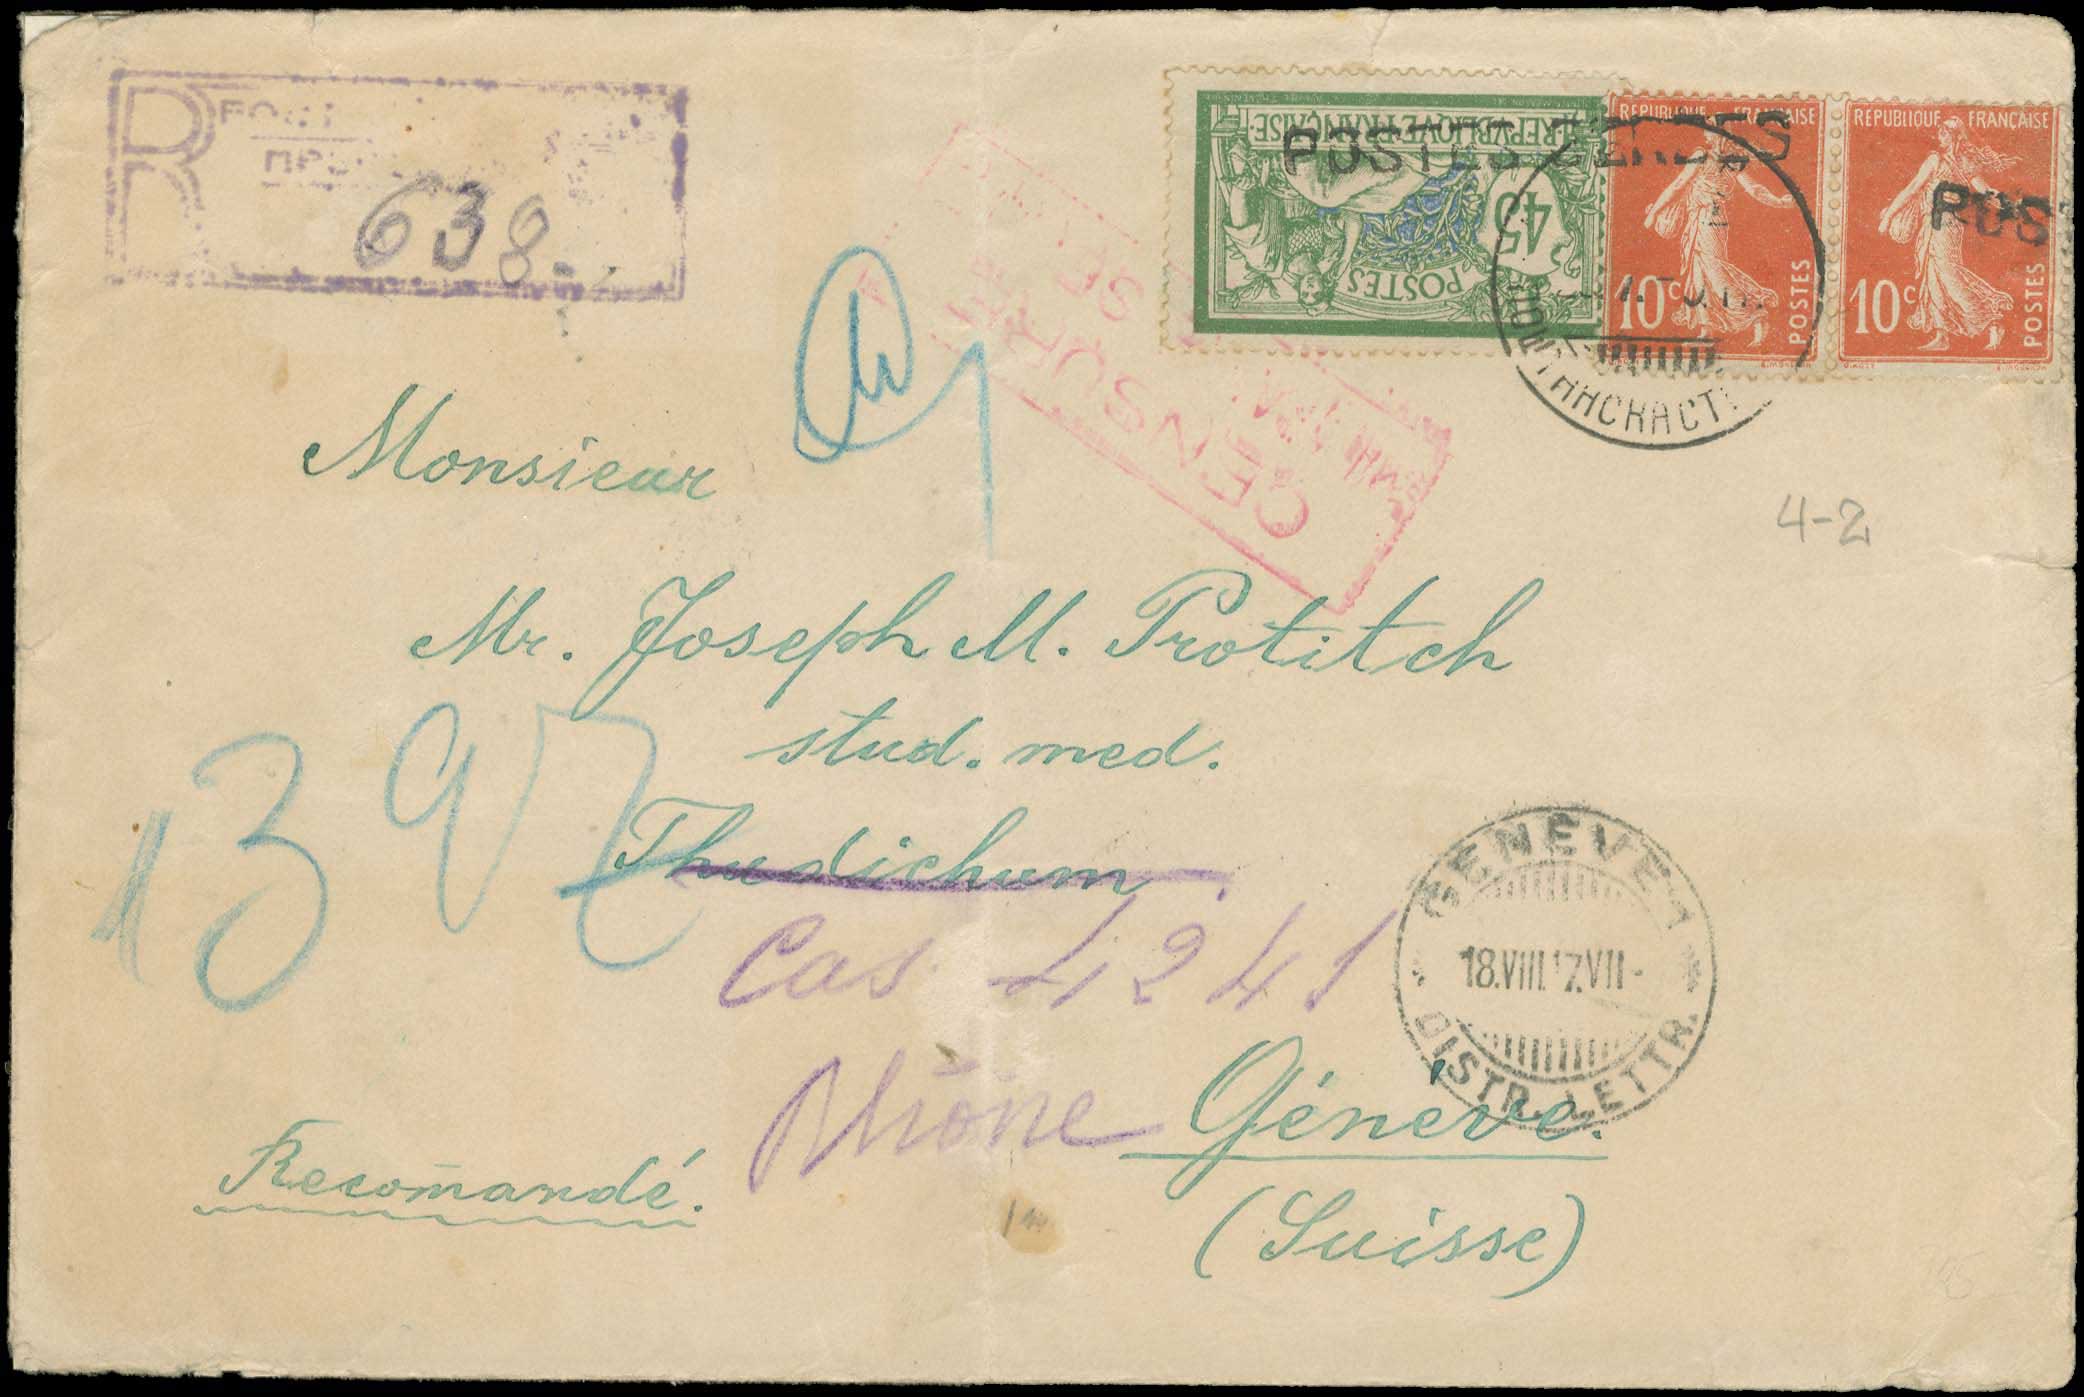 R
638
REPUBLIQUE FRANÇAISE
POSTES
45
POSTES SERBES
REPUBLIQUE FRANÇAISE
10c
POSTES
REPUBLIQUE FRANÇAISE
10c
POSTES
POS
CENSURÉ
4-2
Monsieur
Mr. Joseph M. Protitch
stud. med.
Thudichum
397
Cas 4241
Rhône
Généve.
(Suisse)
Recom̄andé.
GENEVE 1
18.VIII.17.VII-
DISTR. LETTR.